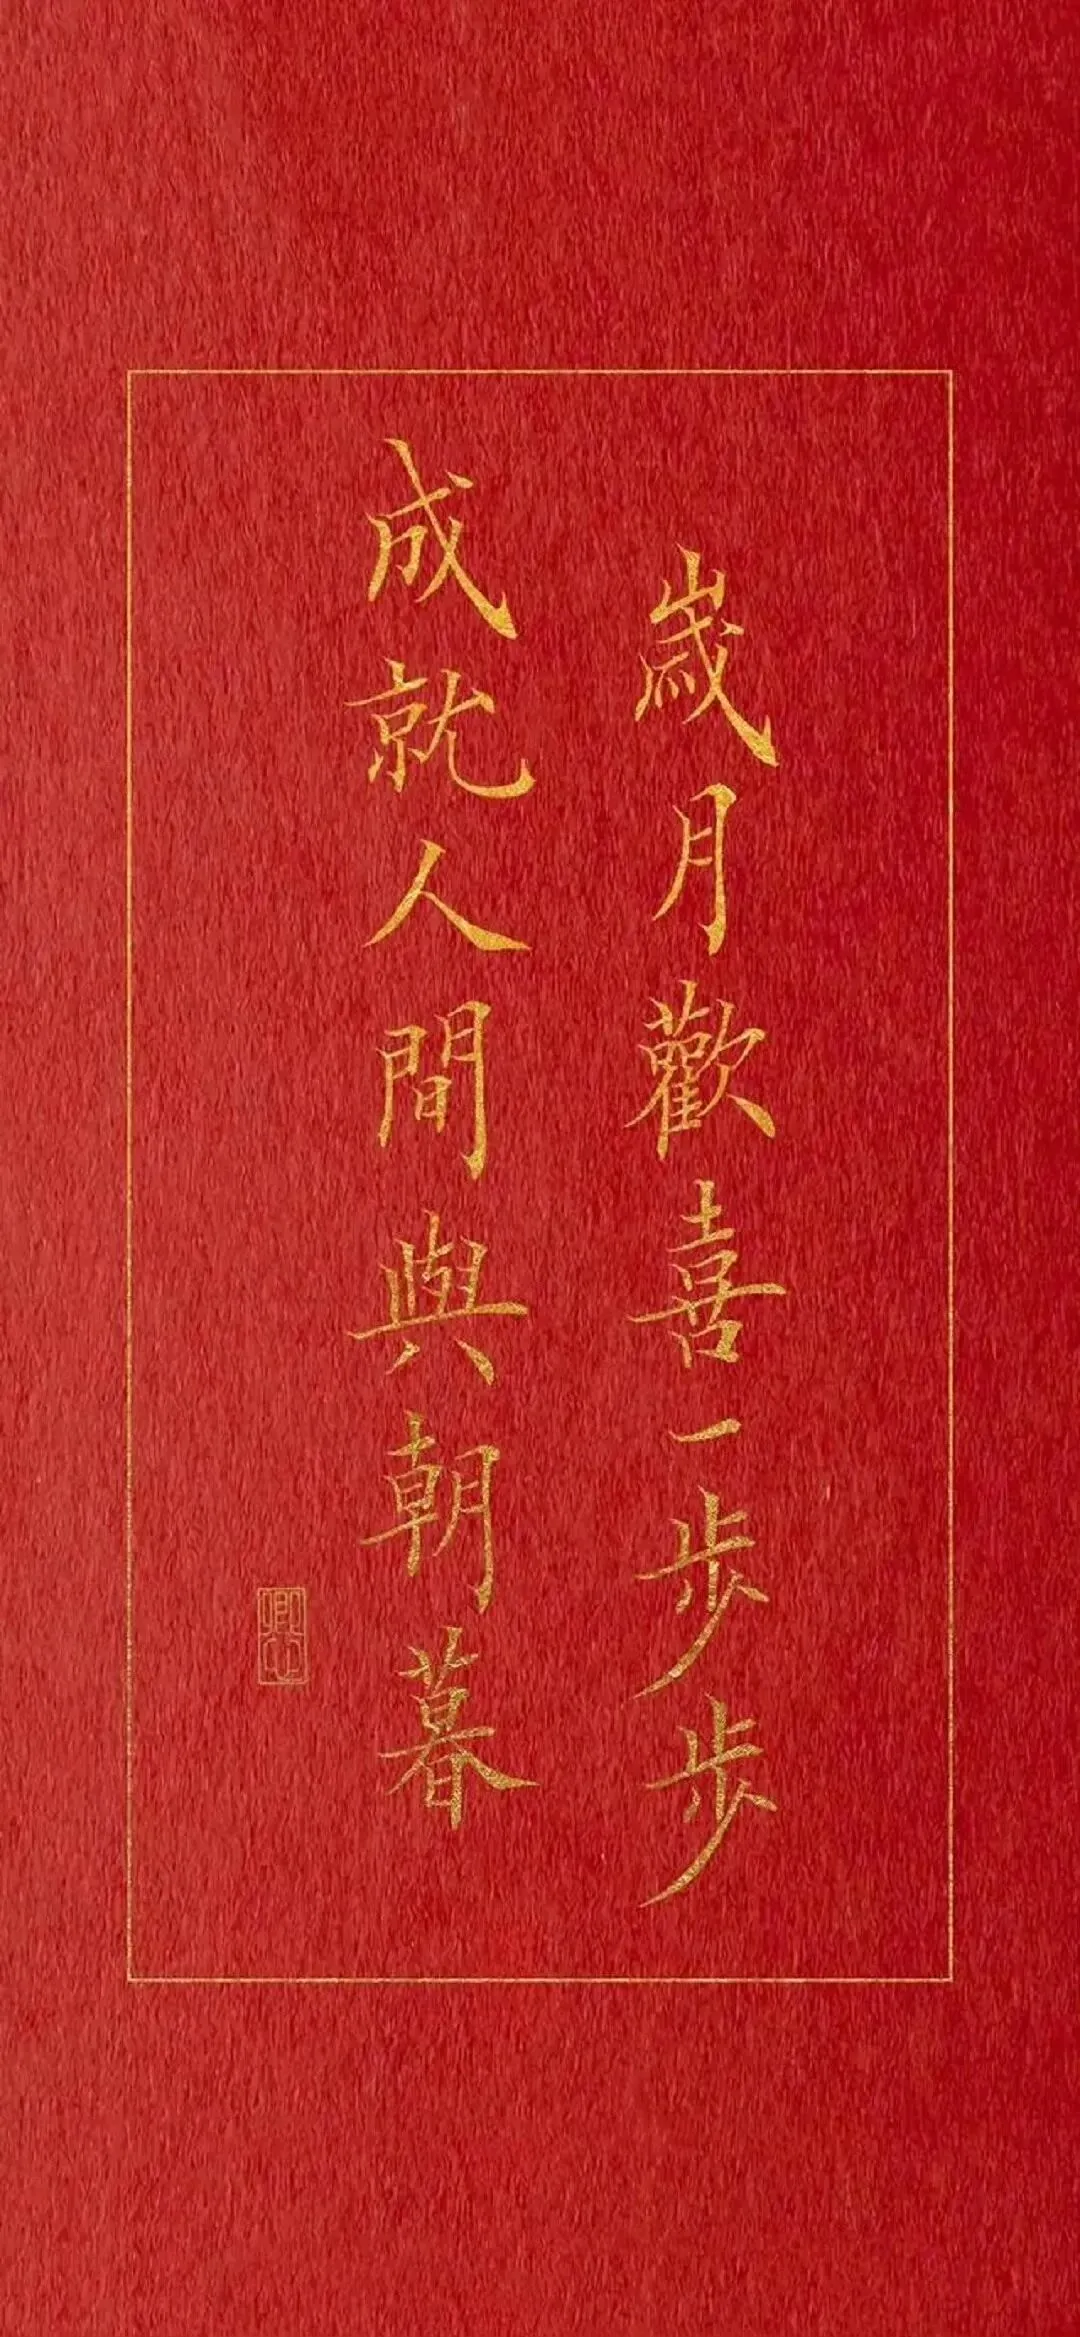 歲月歡喜一步步
成就人間與朝暮